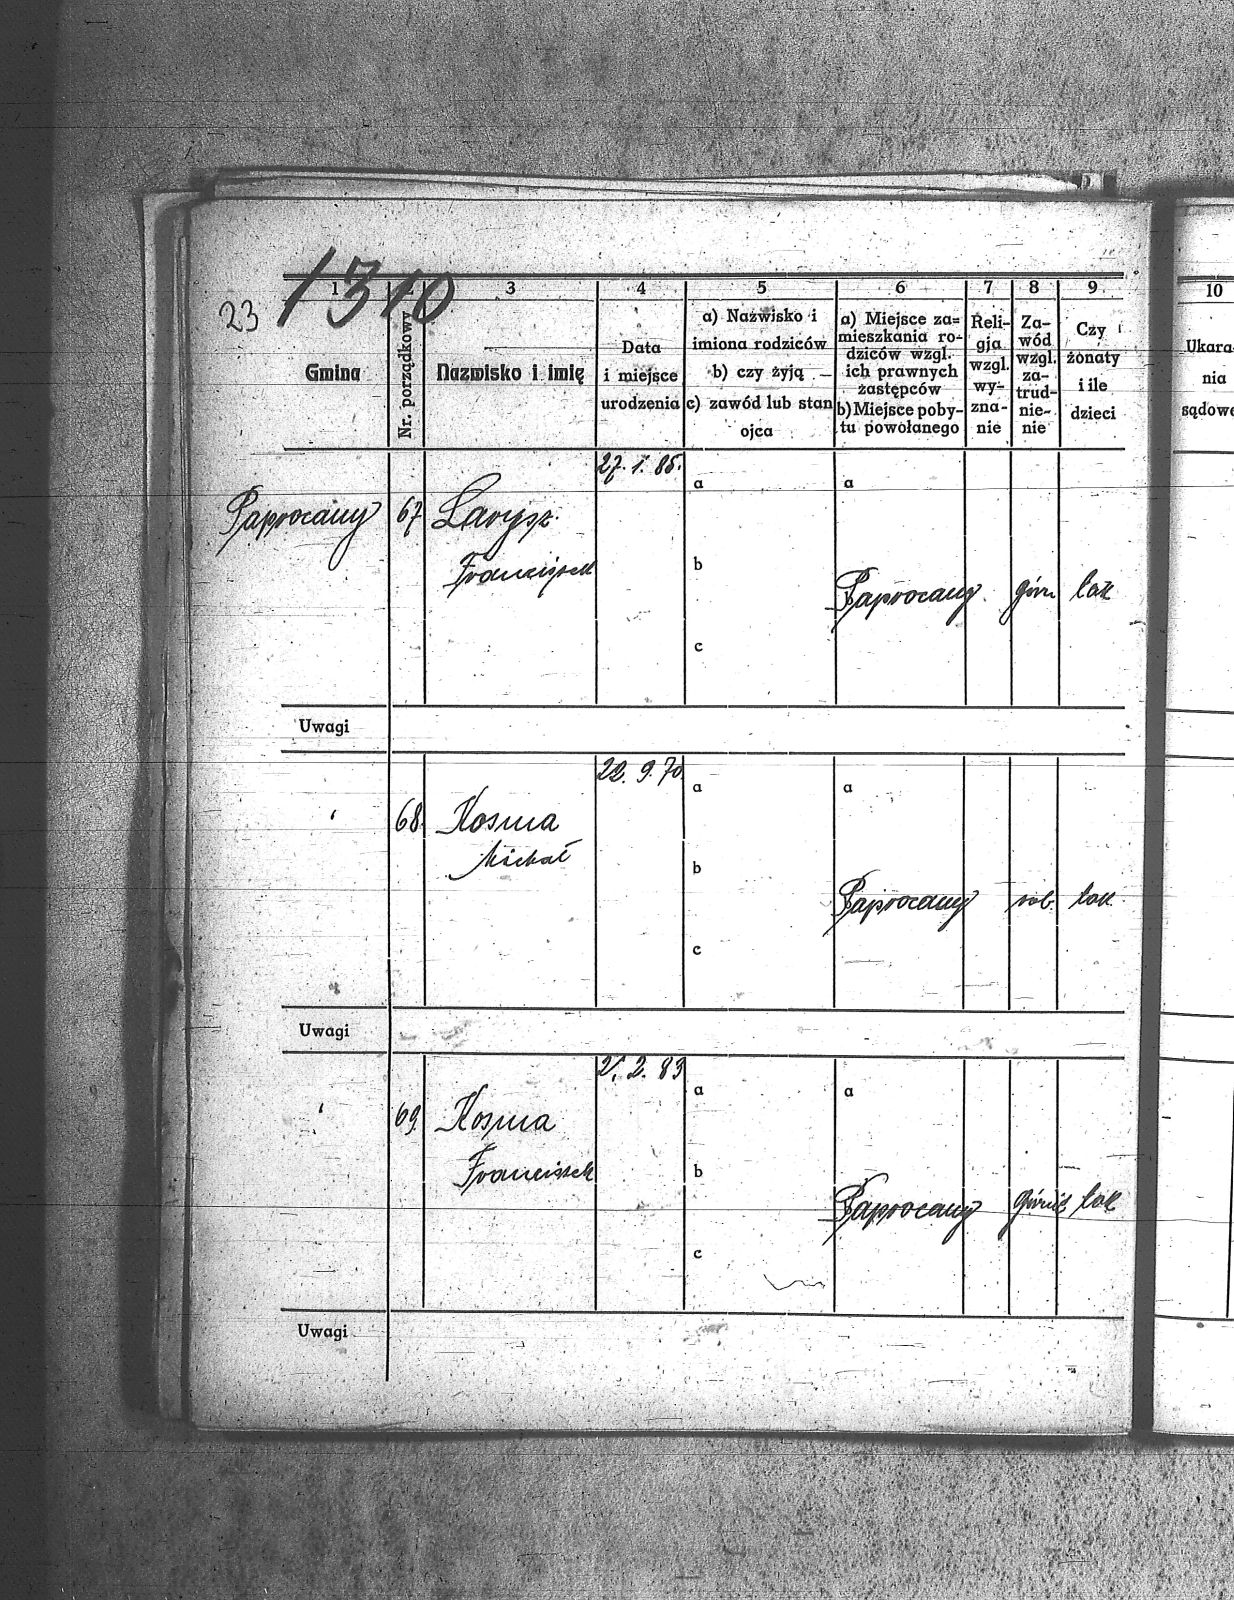 1310
23
1 2 3 4 5 6 7 8 9 10
Gmina
Nr. porządkowy
Nazwisko i imię
Data
i miejsce
urodzenia
a) Nazwisko i
imiona rodziców
b) czy żyją
c) zawód lub stan
ojca
a) Miejsce za=
mieszkania ro-
dziców wzgl.
ich prawnych
zastępców
b) Miejsce poby-
tu powołanego
Reli-
gja
wzgl.
wy-
zna-
nie
Za-
wód
wzgl.
za-
trud-
nie-
nie
Czy
żonaty
i ile
dzieci
Ukara-
nia
sądowe
27. 1. 85.
a a
Paprocany 67 Larysz.
Franciszek
b
Paprocany górn tak
c
Uwagi
22. 9. 70
a a
68. Kosma
Michał
b
Paprocany rob. tak
c
Uwagi
2. 83
a a
69. Kosma
Franciszek
b
Paprocany górnik tak
c
Uwagi